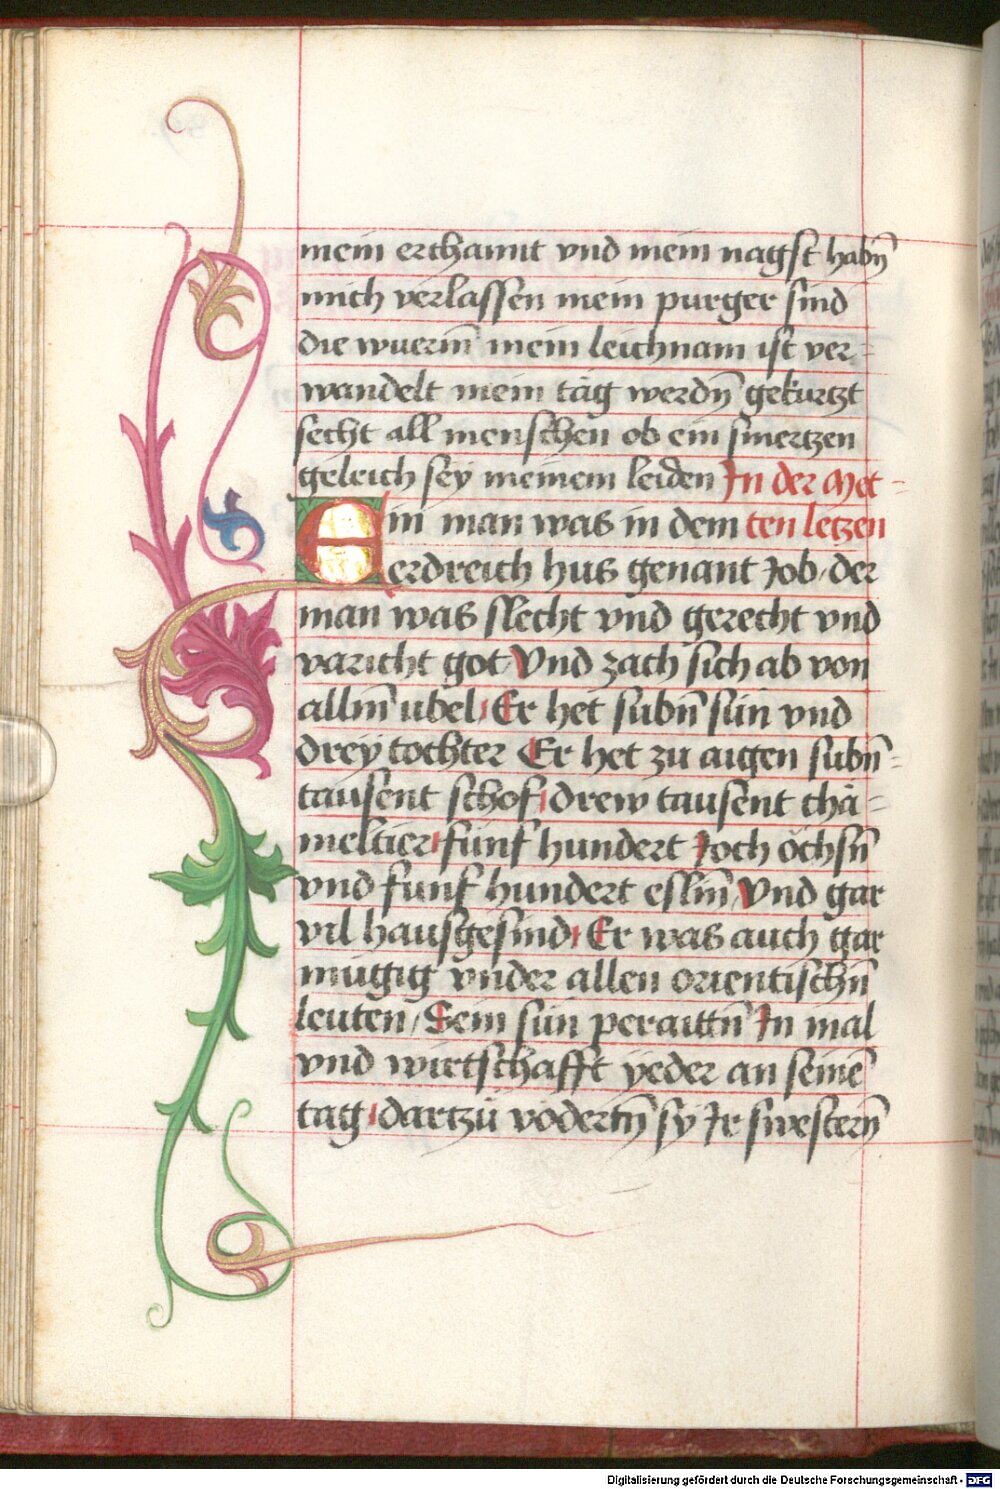 mein erchannt vnd mein nagst habn̄
mich verlassen mein purger sind
die wuerm̄ mein leichnam ist ver=
wandelt mein täg werdn̄ gekurtzt
secht all menschen ob ein smertzen
geleich sey meinem leiden In der Met=
Ein man was in dem ten letzen
erdreich hus genant Job der
man was slecht vnd gerecht vnd
varicht got Vnd zach sich ab von
allm̄ ubel Er het subn̄ sün vnd
drey tochter Er het zu aigen subn̄=
tausent schof drew tausent chä=
meltier fünf hundert Joch öchsn̄
vnd funf hundert eslin̄ Vnd gar
vil hausgesind Er was auch gar
mugig vnder allen orientischn̄
leuten Sein sün peraittn̄ In mal
vnd wirtschafft yeder an seinē
tag dartzů vödertn̄ sy Jr swestern̄
Digitalisierung gefördert durch die Deutsche Forschungsgemeinschaft - DFG